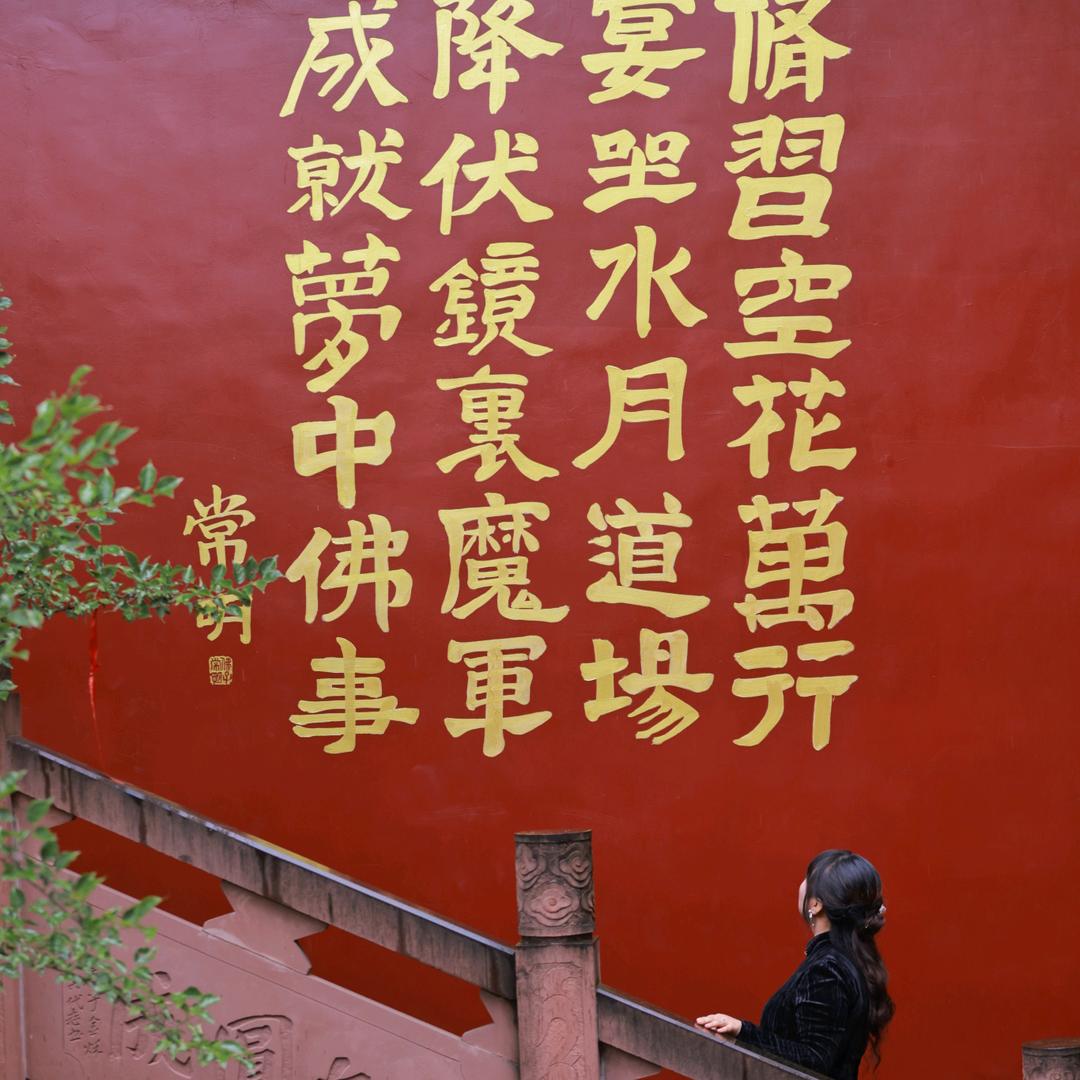 脩習空花萬行
宴坐水月道場
降伏鏡裏魔軍
成就夢中佛事
常明